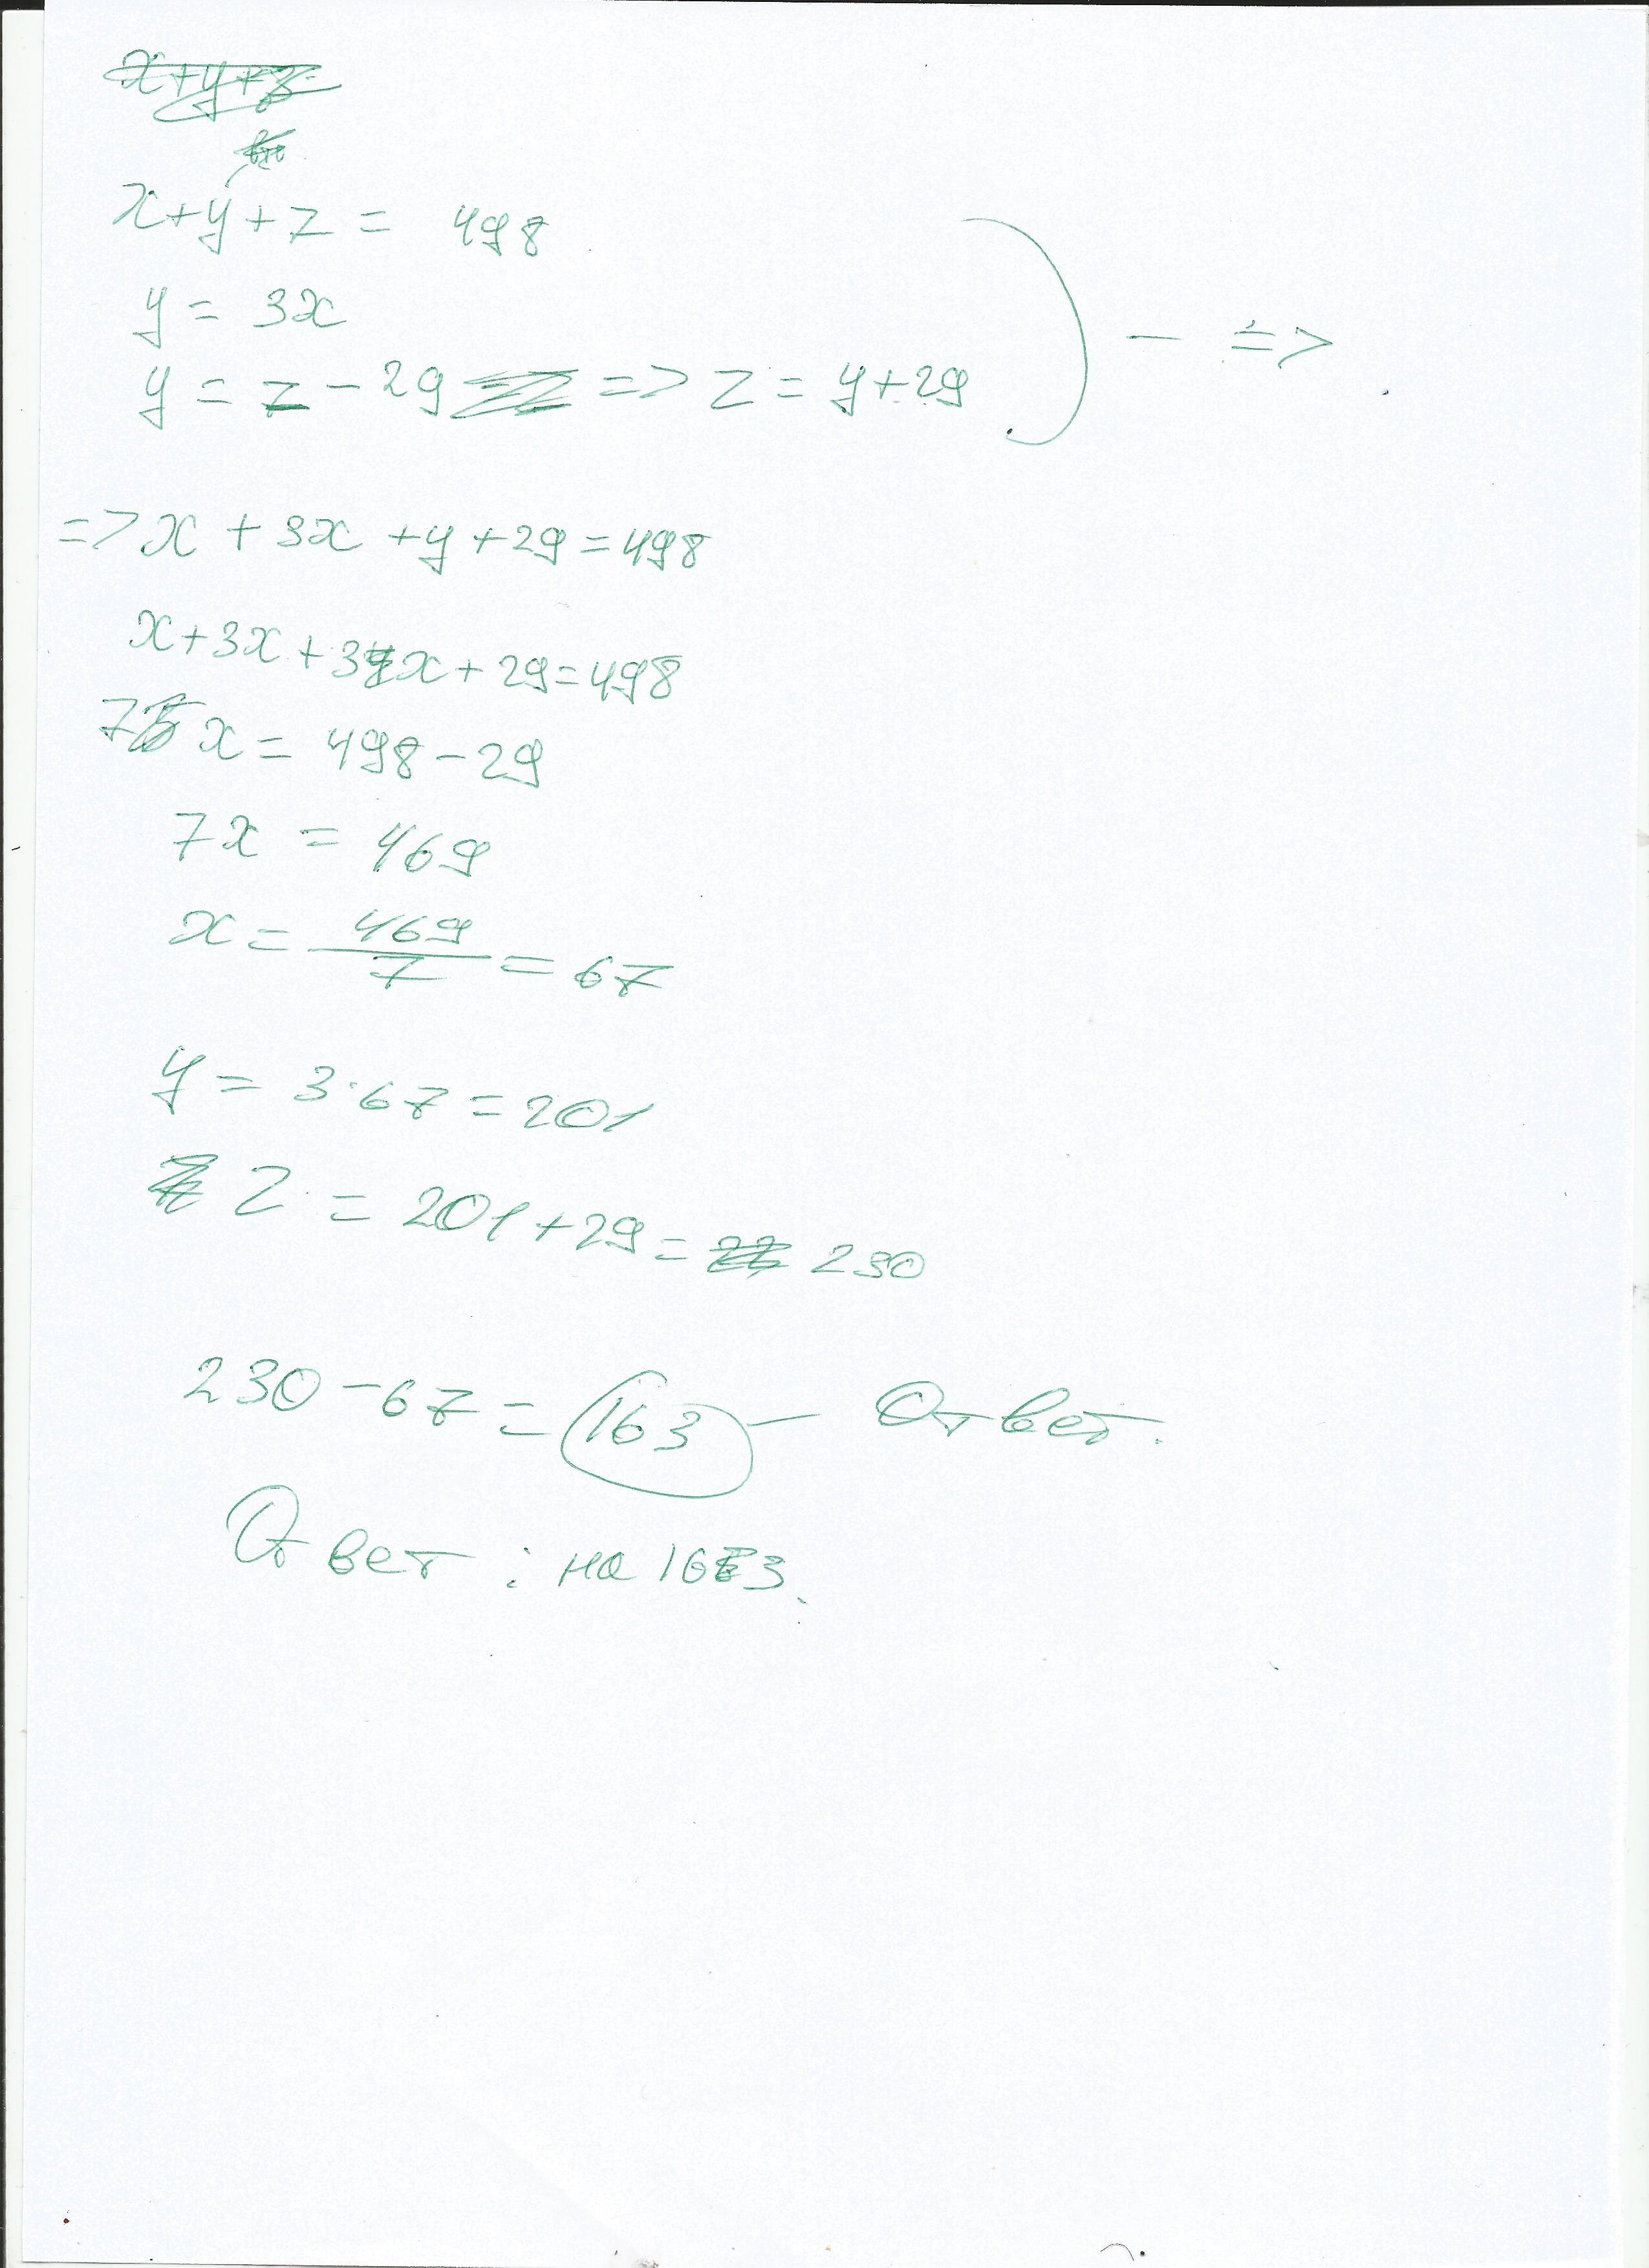 x+y+z
x+y+z = 498
y = 3x
y = z - 29 => z = y+29
- =>
=> x + 3x + y + 29 = 498
x+3x+3x+29=498
7x = 498-29
7x = 469
x = 469/7 = 67
y = 3·67 = 201
z = 201+29 = 230
230-67 = 163 - Ответ.
Ответ: на 163.